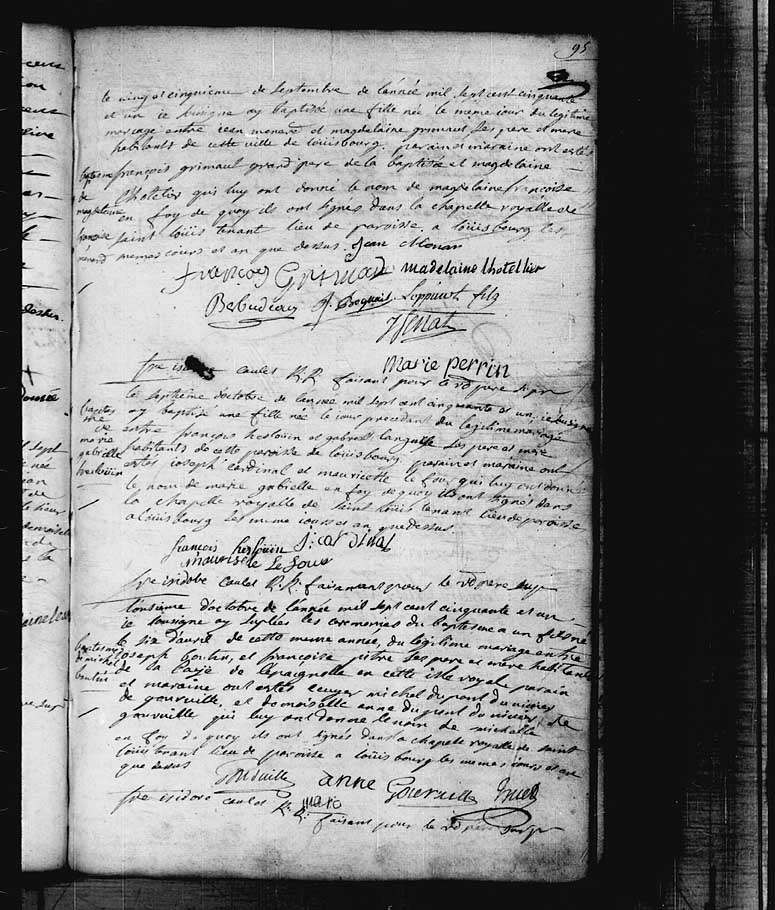 95
le vingt cinquieme de septembre de l'année mil sept cent cinquante
et un ie susigne ay baptisé une fille née le meme iour du legitime
mariage entre iean menard et magdelaine grimaut ses pere et mere
habitants de cette ville de louisbourg. parain et maraine ont estés
françois grimaut grand pere de la baptisée et magdelaine
lhotelier qui luy ont donné le nom de magdelaine françoise
en foy de quoy ils ont signés dans la chapelle royalle de
saint louis tenant lieu de paroisse a louisbourg les
memes iours et an que dessus. Jean Menar
baptesme
de
magdelaine
françoise
menard
françois Grimau madelaine lhotellier
Berbudeau
fils
Marie perrin
frere caulet R.R. faisant pour le rd pere
le septieme d'octobre de l'année mil sept cent cinquante et un, ie susigne
ay baptisé une fille née le iour precedant du legitime mariage
entre françois heslouin et gabrielle ses pere et mere
habitants de cette paroisse de louisbourg. parain et maraine ont
estés ioseph cardinal et le four qui luy ont donné
le nom de marie gabrielle en foy de quoy ils ont signés dans
la chapelle royalle de saint louis tenant lieu de paroisse
a louisbourg les meme iours et an que dessus
baptesme
de
marie
gabrielle
heslouin
françois heslouin J: cardinal
le Four
frere isidore caulet R.R. faisant pour le rd pere sup
l'onsieme d'octobre de l'année mil sept cent cinquante et un
ie sousigne ay suplées les ceremonies du baptesme a un fils né
le six d'avril de cette meme année, du legitime mariage entre
ioseph boutin, et françoise pitre ses pere et mere habitants
de la baye de l'espagnolle en cette isle royal, parain
et maraine ont estés michel dupont du vivier
de gourville, et demoiselle anne dupont du vivier de
gourville qui luy ont donné le nom de michelle
en foy de quoy ils ont signés dans la chapelle royalle de saint
louis tenant lieu de paroisse a louisbourg les memes iours et an
que dessus
baptesme
de michel
boutin
Gourville anne Gourville
frere isidore caulet R. R. faisant pour le rd pere sup